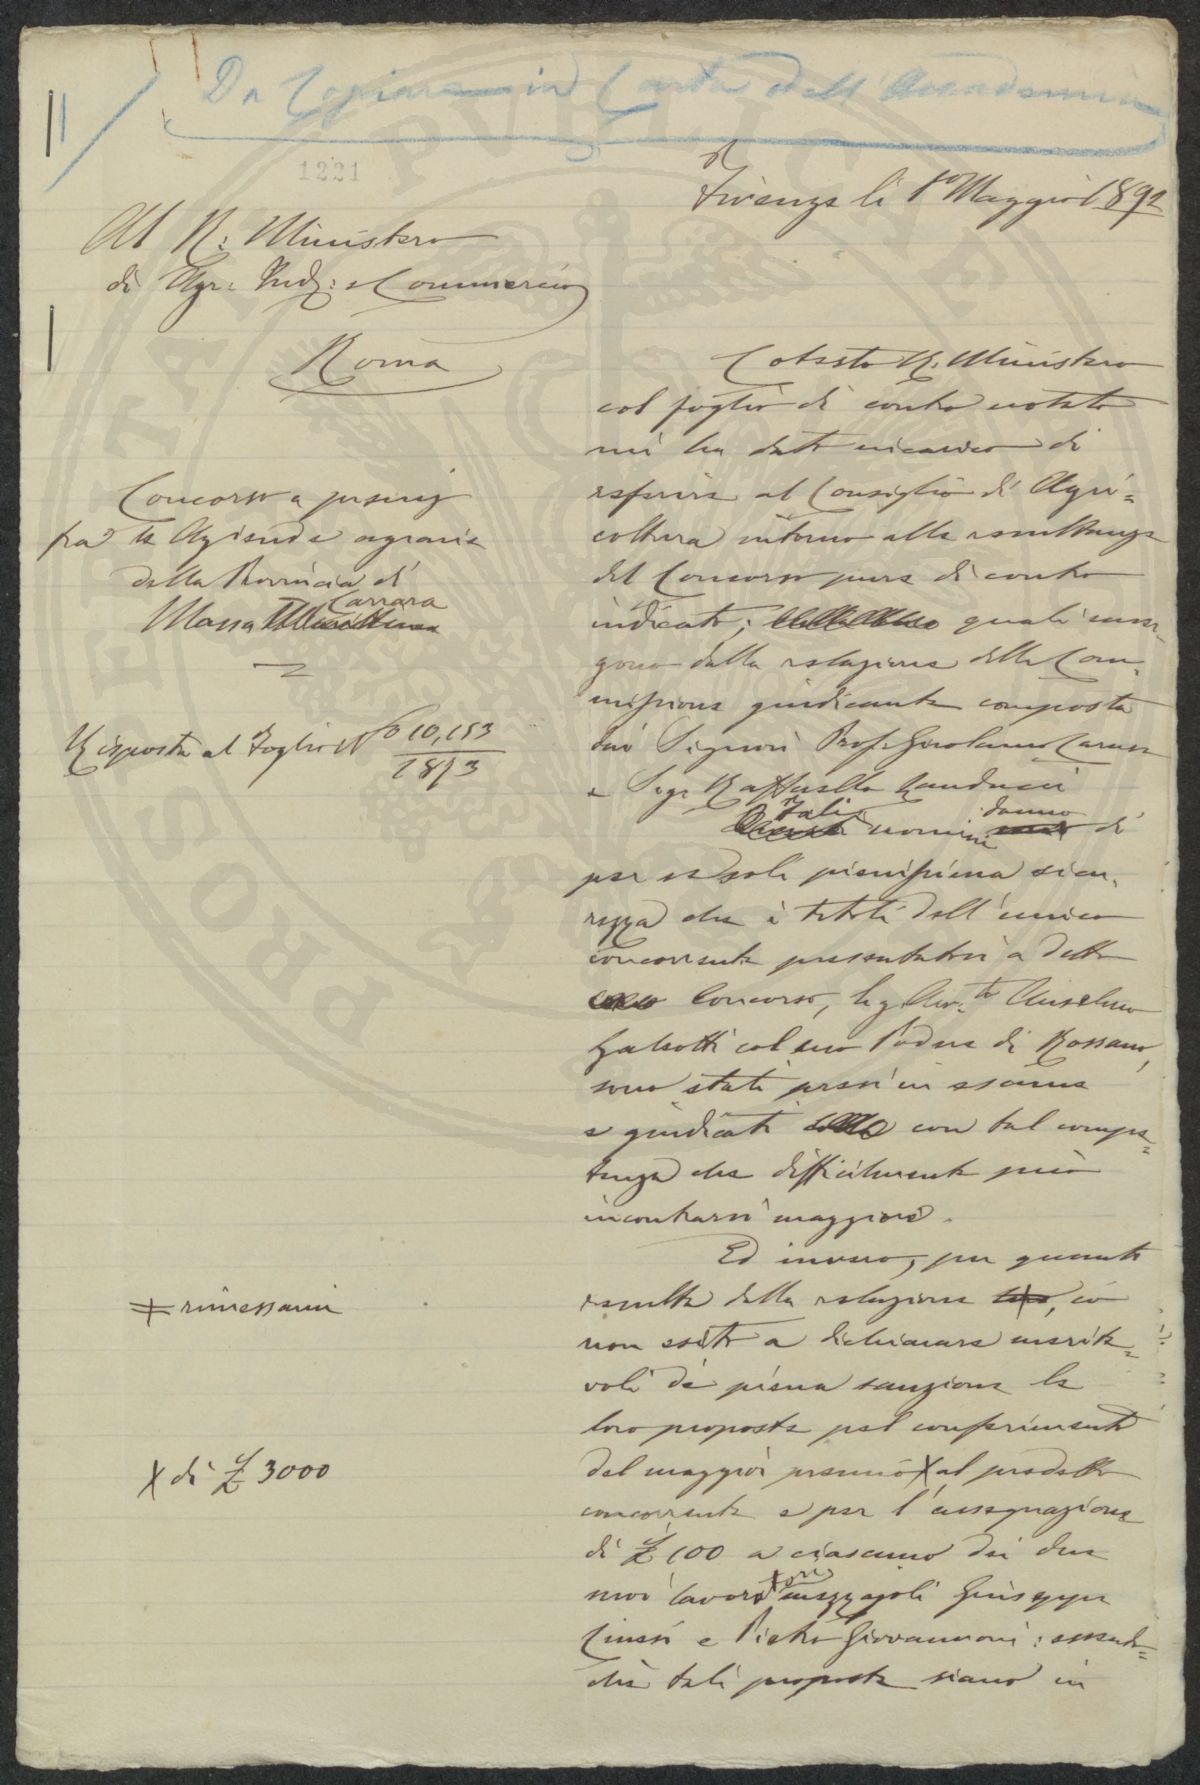 Da Copiarsi in Carta dell'Accademia
1221
Firenze li 1º Maggio 1892
Al R: Ministero
di Agr: Ind: e Commercio
Roma
Concorso a premj
fra le Aziende agrarie
della Provincia di
Carrara
Massa
Risposta al Foglio Nº 10,153
1813
Cotesto R. Ministero
col foglio di contro notato
mi ha dato incarico di
referire al Consiglio di Agri=
coltura intorno alle resultanze
del Concorso pure di contro
indicato; quali emer-
gono dalla relazione della Com-
missione giudicante composta
dai Signori Prof. Girolamo Caruso
e Ing. Raffaello Landucci
Tali nomi danno di
per se soli pienissima sicu-
rezza che i titoli dell'unico
concorrente presentatosi a detto
Concorso, Avv.to Anselmo
Galeotti col suo Podere di Rossano,
sono stati presi in esame
e giudicati con tal compe=
tenza che difficilmente può
incontrarsi maggiore.
Ed invero, per quanto
resulta dalla relazione, io
≠ rimessami
non esito a dichiarare merite=
voli di piena sanzione le
loro proposte pel conferimento
del maggior premio X al predetto
X di £ 3000
concorrente e per l'assegnazione
di £ 100 a ciascuno dei due
suoi lavoratori mezzajoli Giuseppe
Cinesi e Pietro Giovannoni: essendo=
chè tali proposte siano in